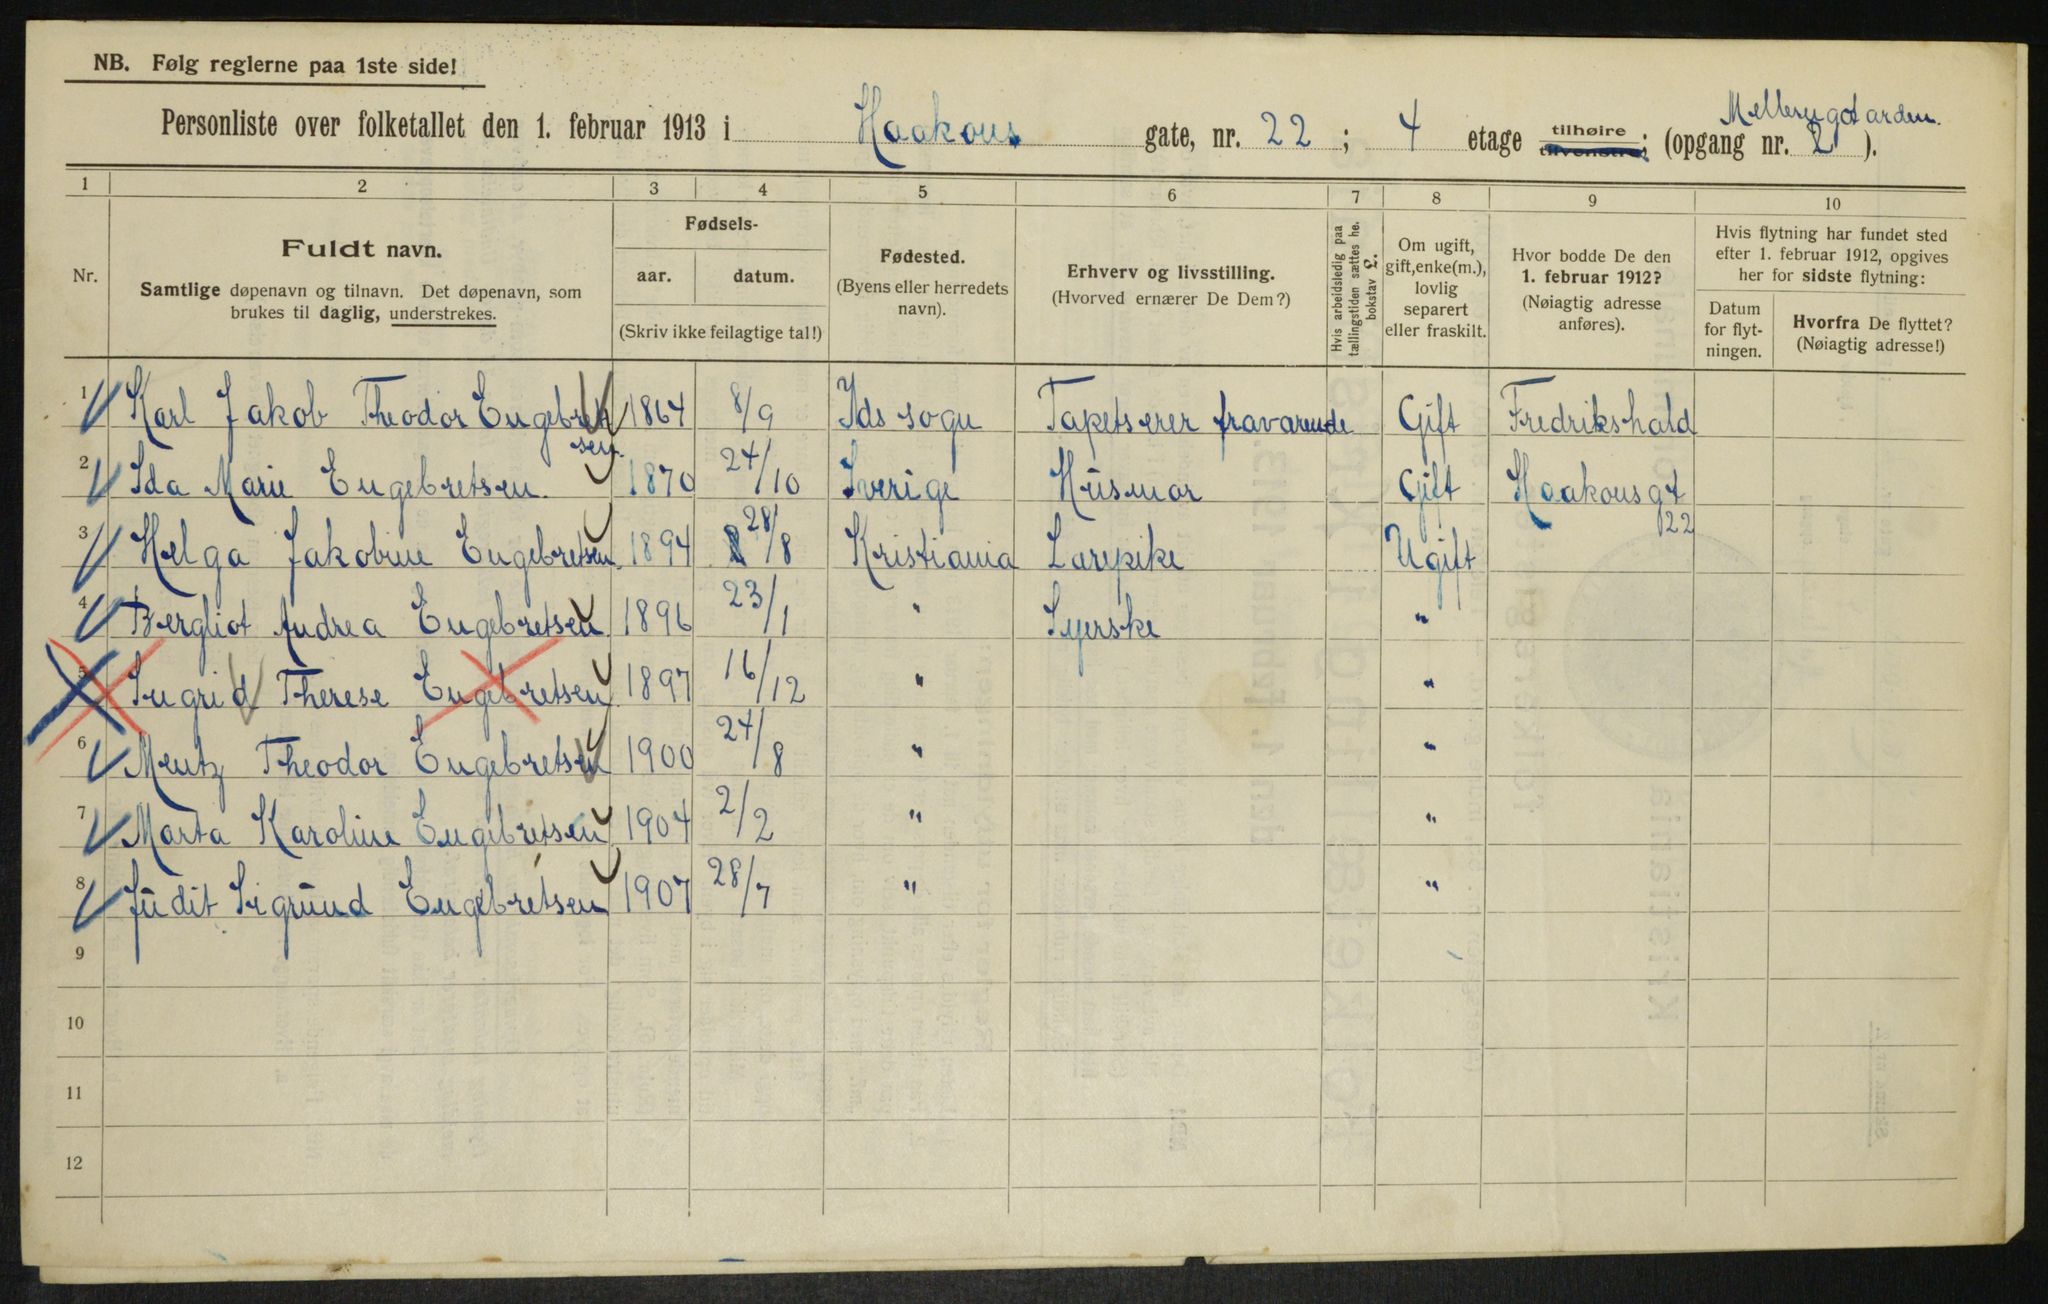 NB. Følg reglerne paa 1ste side!
Mellemgaarden.
Personliste over folketallet den 1. februar 1913 i Haakons gate, nr. 22 ; 4 etage tilhøire tilvenstre; (opgang nr. 2 ).
1 2 3 4 5 6 7 8 9 10
Nr.
Fuldt navn.
Samtlige døpenavn og tilnavn. Det døpenavn, som
brukes til daglig, understrekes.
Fødsels-
aar. datum.
(Skriv ikke feilagtige tal!)
Fødested.
(Byens eller herredets
navn).
Erhverv og livsstilling.
(Hvorved ernærer De Dem?)
Hvis arbeidsledig paa
tællingstiden sættes he.
bokstav L.
Om ugift,
gift,enke(m.),
lovlig
separert
eller fraskilt.
Hvor bodde De den
1. februar 1912?
(Nøiagtig adresse
anføres).
Hvis flytning har fundet sted
efter 1. februar 1912, opgives
her for sidste flytning:
Datum
for flyt-
ningen.
Hvorfra De flyttet?
(Nøiagtig adresse!)
1 Karl Jakob Theodor Engebret 1864 8/9 Ids sogn Tapetserer fraværende Gift Fredrikshald
sen.
2 Ida Marie Engebretsen. 1870 24/10 Sverige Husmor Gift Haakonsgt
22
3 Helga Jakobine Engebretsen 1894 28/8 Kristiania Larepike Ugift
4 Bergliot Andrea Engebretsen 1896 23/1 " Syerske "
5 Ingrid Therese Engebretsen 1897 16/12 " "
6 Mentz Theodor Engebretsen 1900 24/8 " "
7 Marta Karoline Engebretsen 1904 2/2 " "
8 Judit Sigrund Engebretsen 1907 28/7 " "
9
10
11
12